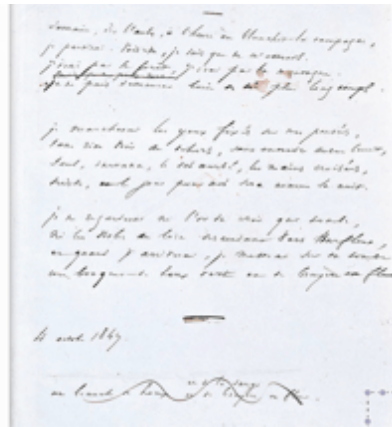 demain, dès l'aube, à l'heure où blanchit la campagne,
je partirai. Vois-tu, je sais que tu m'attends.
j'irai par la forêt, j'irai par la montagne.
je ne puis demeurer loin de toi plus longtemps.
je marcherai les yeux fixés sur mes pensées,
sans rien voir au dehors, sans entendre aucun bruit,
Seul, inconnu, le dos courbé, les mains croisées,
triste, et le jour pour moi sera comme la nuit.
je ne regarderai ni l'or du soir qui tombe,
ni les voiles au loin descendant vers Harfleur,
et quand j'arriverai, je mettrai sur ta tombe
un bouquet de houx vert et de bruyère en fleur
4 1847
de houx
et de bruyère en fleur.